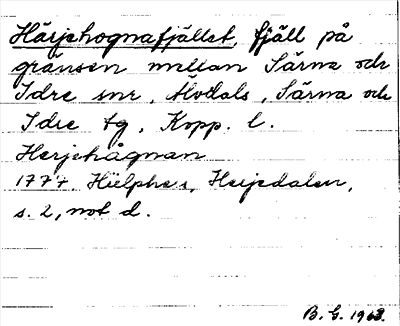 Härjehognafjället, fjäll på
gränsen mellan Särna och
Idre snr, Älvdals, Särna och
Idre tg, Kopp. l.
Herjehågnan
1777. Hülphers, Herjedalen,
s. 2, not d.
B. G. 1963.